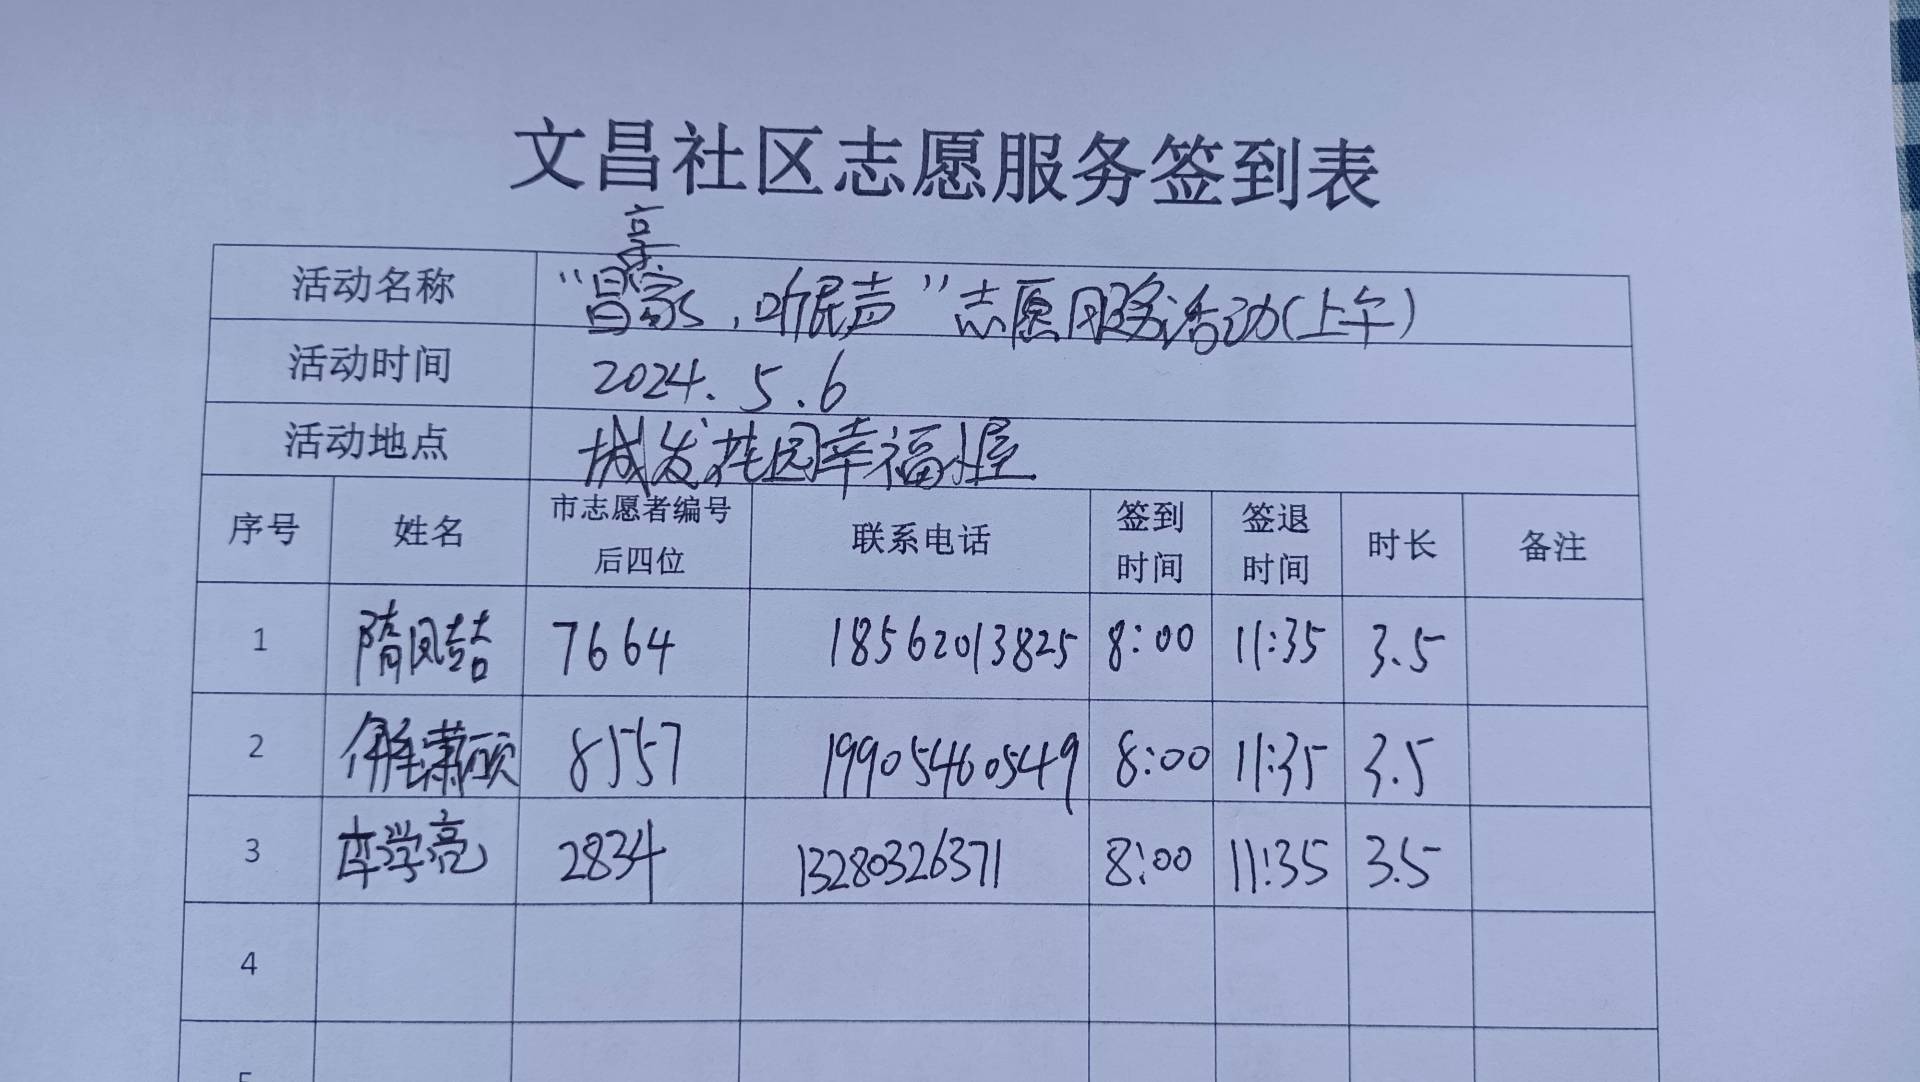 文昌社区志愿服务签到表
活动名称 “昌享家，听民声”志愿服务活动(上午)
活动时间 2024.5.6
活动地点 城发花园幸福小屋
序号 姓名 市志愿者编号后四位 联系电话 签到时间 签退时间 时长 备注
1 隋凤喆 7664 18562013825 8:00 11:35 3.5
2 潇硕 8557 19905460549 8:00 11:35 3.5
3 车学亮 2834 13280326371 8:00 11:35 3.5
4